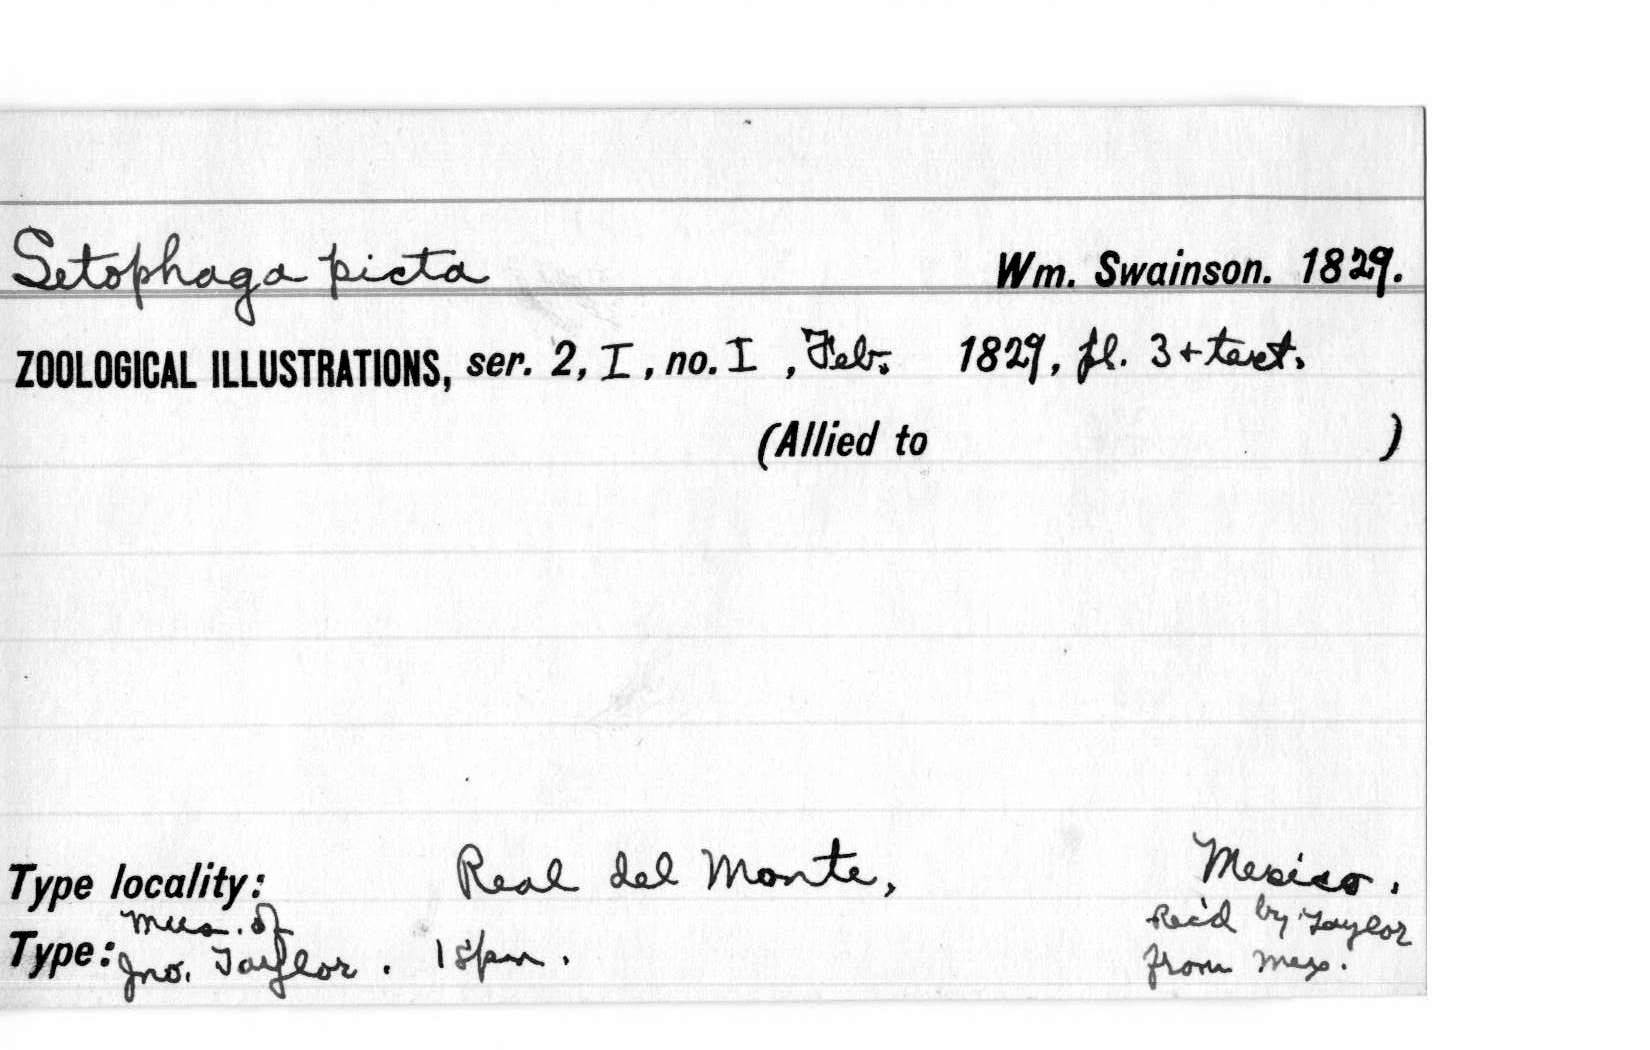 Setophaga picta Wm. Swainson. 1829.
ZOOLOGICAL ILLUSTRATIONS, ser. 2, I, no. I, Feb. 1829, pl. 3 + text.
(Allied to )
Type locality: Real del Monte, Mexico.
Type: Mus. of Jno. Taylor. 1 spm. Rec'd by Taylor
from Mex.